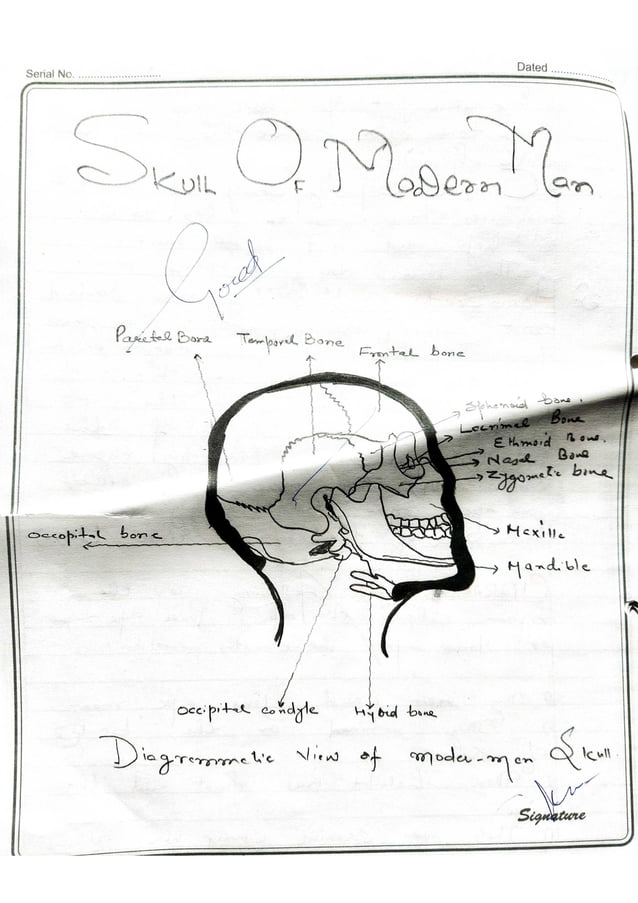 Serial No. ............................
Dated ......................
Skull Of Modern Man
Good
Parietal Bone
Temporal Bone
Frontal bone
Sphenoid bone.
Lacrimal Bone
Ethmoid Bone.
Nasal Bone
Zygometic bone
Occopital bone
Mexille
Mandible
Occipitel condyle
Hyoid bone
Diagremmetic View of moder-men Skull.
Signature